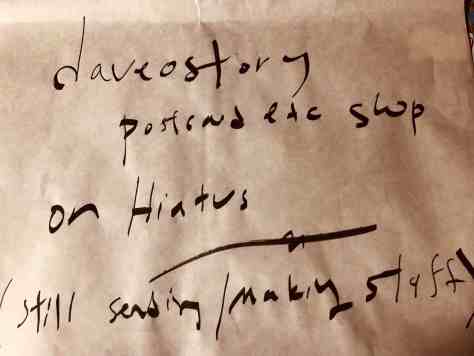 daveostory
postcard etc shop
on Hiatus
(still sending/making stuff)